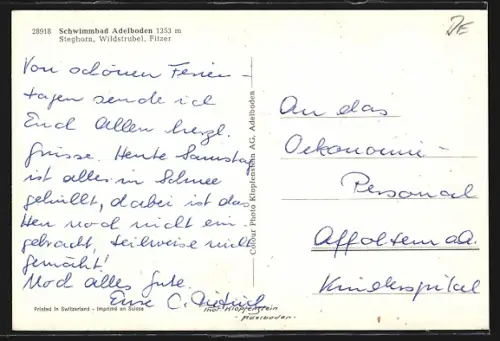 28918 Schwimmbad Adelboden 1353 m
Steghorn, Wildstrubel, Fitzer
Von schönen Ferien-
tagen sende ich
Euch Allen herzl.
Grüsse. Heute Samstag
ist alles in Schnee
gehüllt, dabei ist das
Heu noch nicht ein-
gebracht, teilweise nicht
gemäht!
Noch alles Gute
Eure C.
Printed in Switzerland - Imprimé en Suisse
Colour Photo Klopfenstein AG. Adelboden
Thor. Klopfenstein
- Adelboden -
An das
Oekonomie-
Personal
Affoltern a.A.
Kinderspital